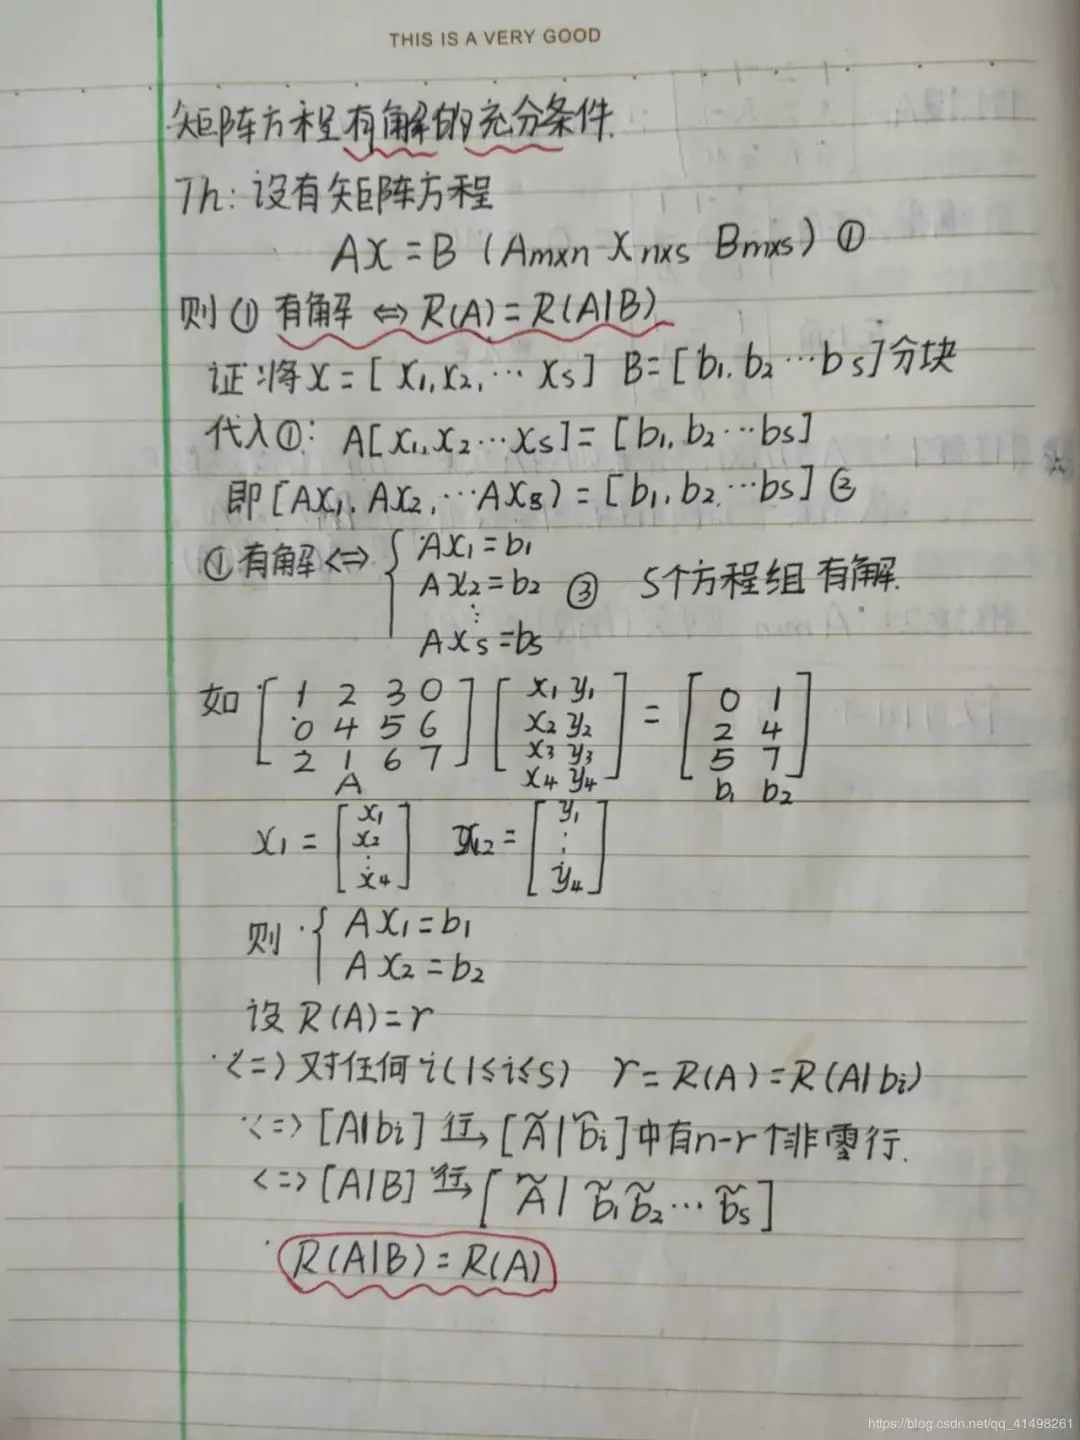 THIS IS A VERY GOOD
矩阵方程有解的充分条件.
Th: 设有矩阵方程
AX = B (Am×n Xn×s Bm×s) ①
则①有解 ⇔ R(A) = R(A|B)
证:将X = [X1, X2, … Xs] B = [b1, b2 … bs]分块
代入①: A[X1, X2 … Xs] = [b1, b2 … bs]
即 [AX1, AX2, … AXs) = [b1, b2 … bs] ②
①有解 <=> { AX1 = b1
AX2 = b2 ③ S个方程组有解.
⋮
AXs = bs
如 [ 1 2 3 0 ] [ x1 y1 ] = [ 0 1 ]
0 4 5 6 x2 y2 2 4
2 1 6 7 x3 y3 5 7
A x4 y4 b1 b2
X1 = [ x1 x2 ⋮ x4 ] X2 = [ y1 ⋮ y4 ]
则 { AX1 = b1
AX2 = b2
设 R(A) = r
<=> 对任何 i(1≤i≤S) r = R(A) = R(A|bi)
<=> [A|bi] 行→ [Ã|b̃i]中有n-r个非零行.
<=> [A|B] 行→ [Ã| b̃1 b̃2 … b̃s]
R(A|B) = R(A)
https://blog.csdn.net/qq_41498261